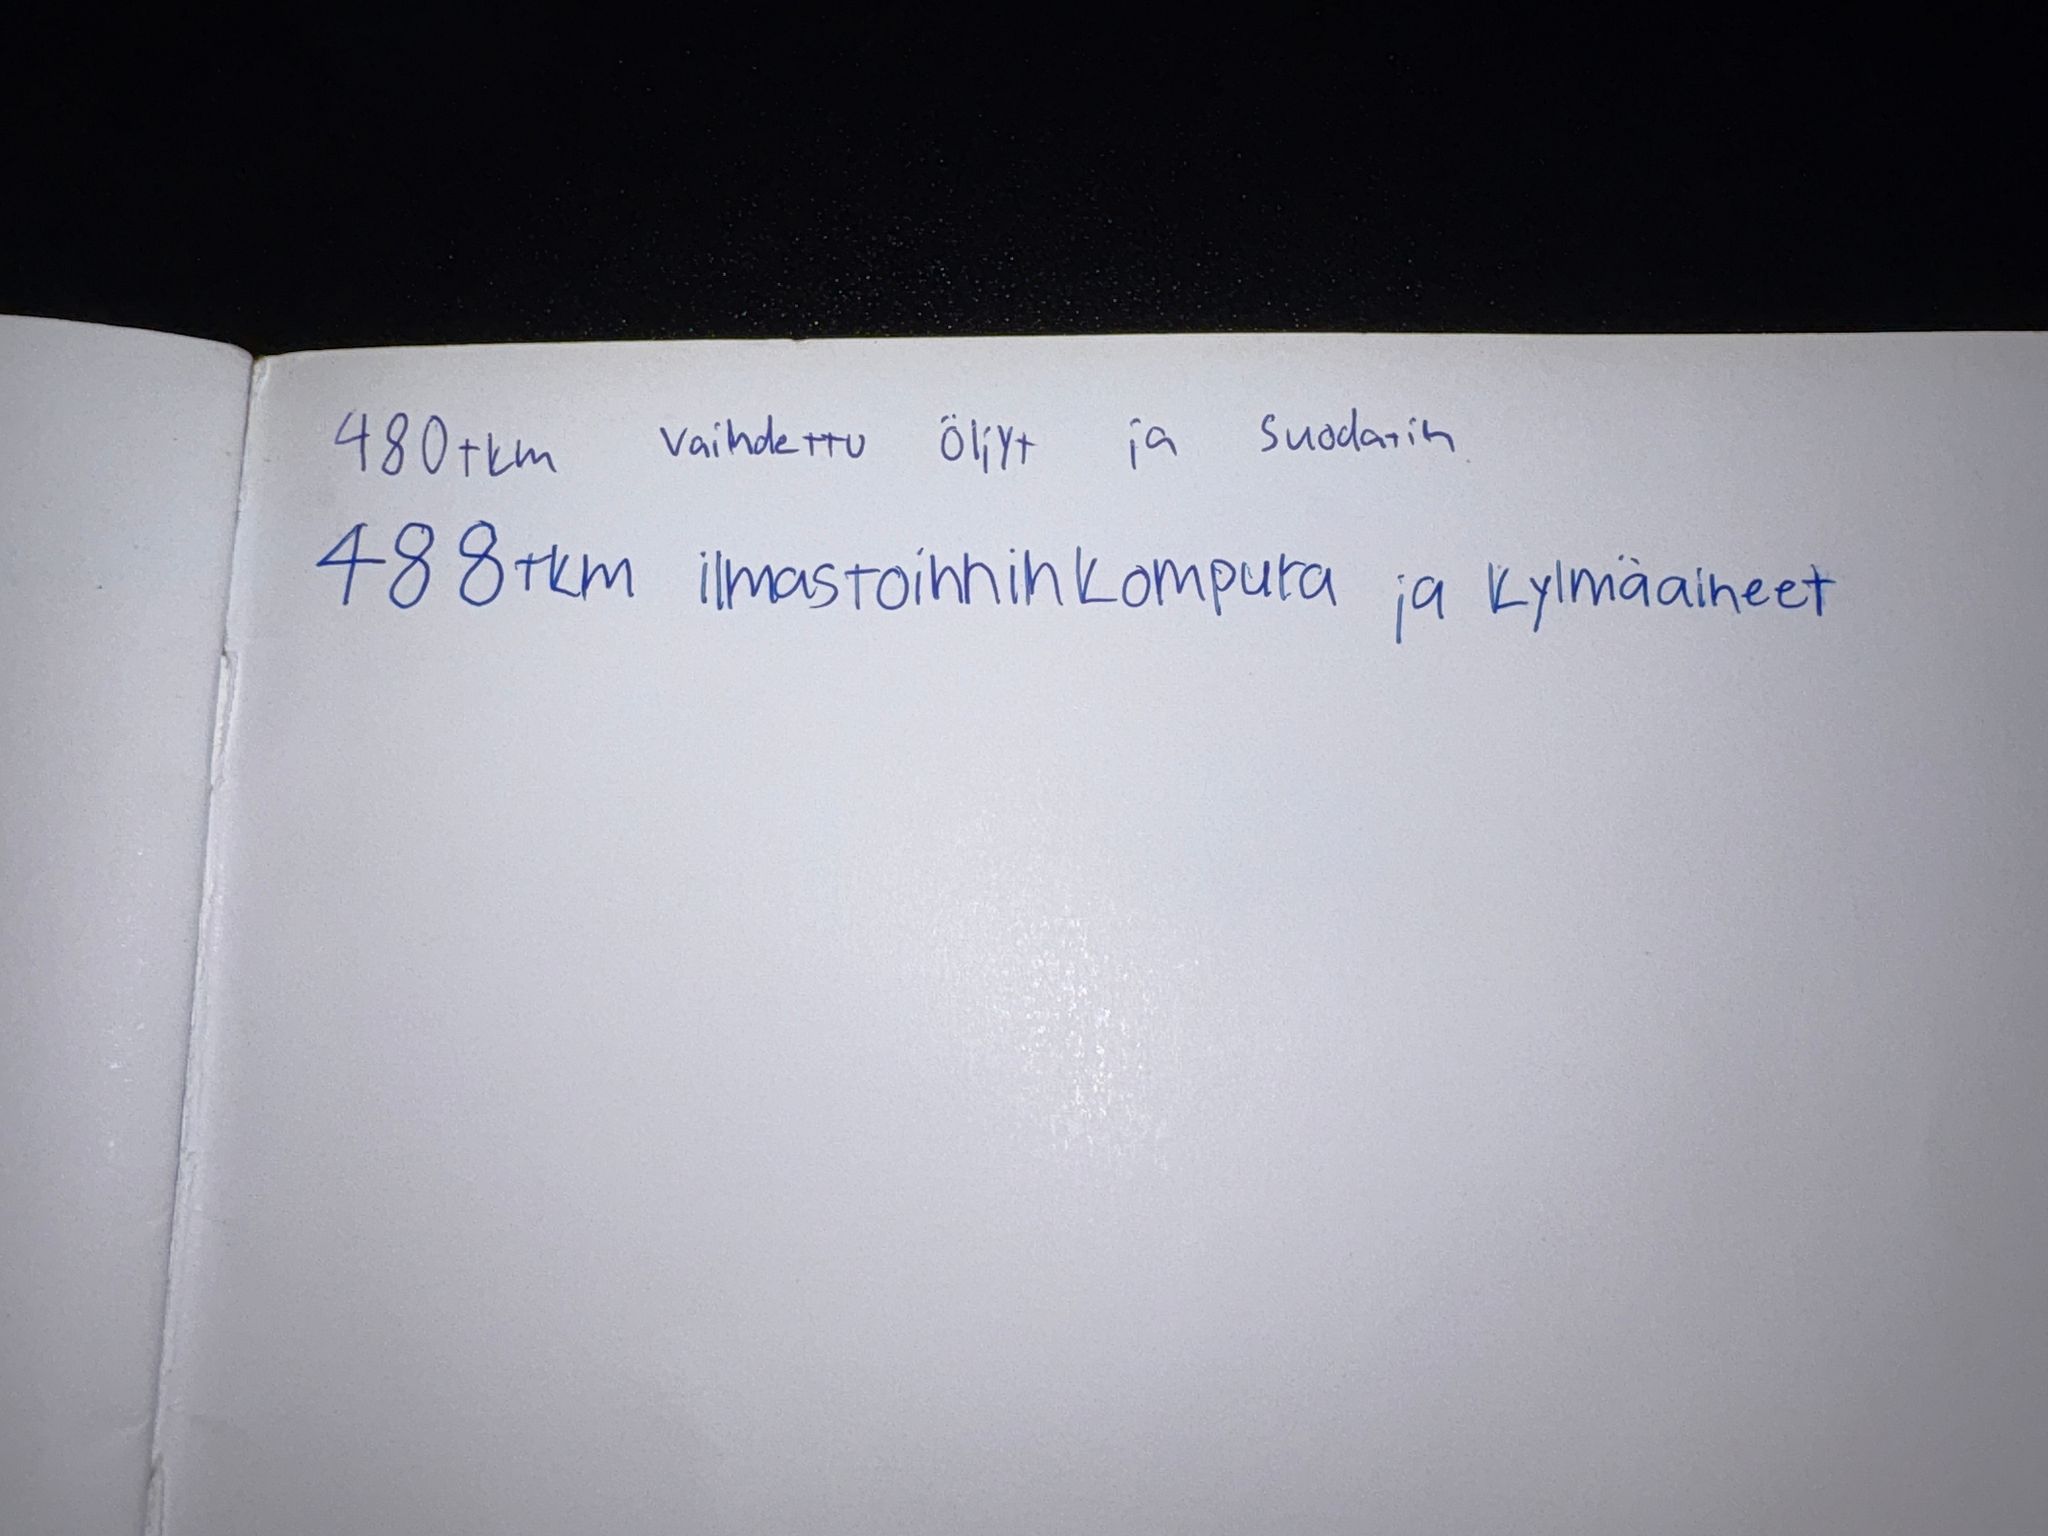 480tkm vaihdettu öljyt ja suodatin
488tkm ilmastoinninkompura ja kylmäaineet